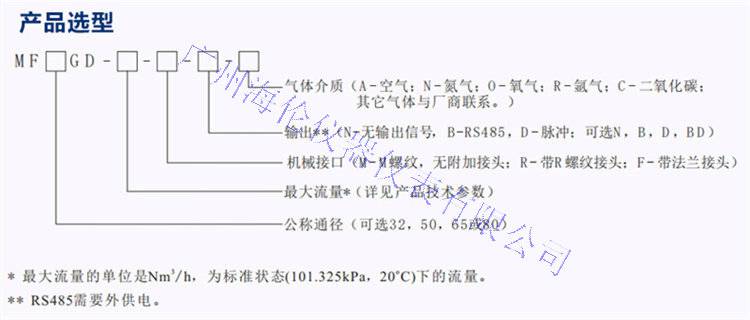 产品选型
MF□GD-□-□-□-□
气体介质（A-空气；N-氮气；O-氧气；R-氩气；C-二氧化碳；
其它气体与厂商联系。）
输出**（N-无输出信号，B-RS485，D-脉冲；可选N，B，D，BD）
机械接口（M-M螺纹，无附加接头；R-带R螺纹接头；F-带法兰接头）
最大流量*（详见产品技术参数）
公称通径（可选32，50，65或80）
* 最大流量的单位是Nm³/h，为标准状态(101.325kPa，20°C)下的流量。
** RS485需要外供电。
广州海伦仪器仪表有限公司